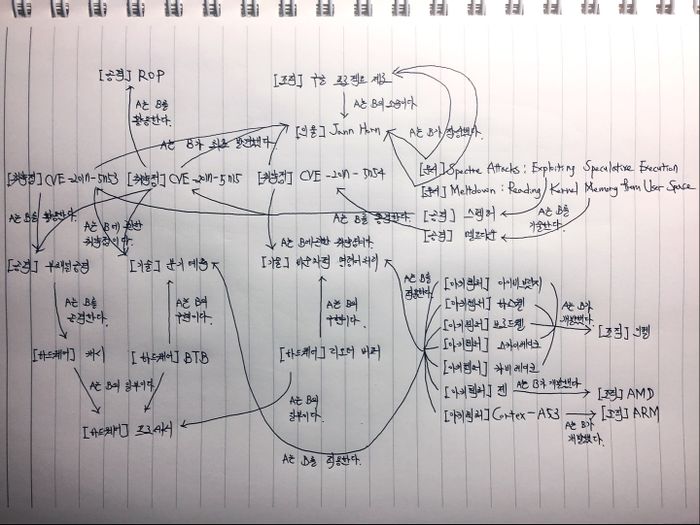 [공격] ROP
[조직] 구글 프로젝트 제로
A는 B를
활용한다.
A는 B의 소속이다.
A는 B가 최초 발견했다.
[인물] Jann Horn
A는 B가 작성했다.
[문서] Spectre Attacks: Exploiting Speculative Execution
[문서] Meltdown: Reading Kernel Memory from User Space
[취약점] CVE-2017-5753
[취약점] CVE-2017-5715
[취약점] CVE-2017-5754
A는 B를 활용한다.
A는 B에 관한
취약점이다.
A는 B를
[공격] 스펙터
[공격] 멜트다운
A는 B를
기술한다.
A는 B에 관한 취약점이다.
[공격] 부채널 공격
[기술] 분기 예측
[기술] 비순차적 명령어 처리
A는 B를
공격한다.
A는 B의
구현이다.
A는 B의
구현이다.
A는 B를
적용한다.
[아키텍처] 아이비브릿지
[아키텍처] 하스웰
[아키텍처] 브로드웰
[아키텍처] 스카이레이크
[아키텍처] 카비레이크
[아키텍처] 젠
[아키텍처] Cortex-A53
A는 B가
개발했다.
[조직] 인텔
A는 B가 개발했다.
[조직] AMD
[조직] ARM
A는 B가
개발했다.
[하드웨어] 캐시
[하드웨어] BTB
[하드웨어] 리오더 버퍼
A는 B의 일부이다.
A는 B의
일부이다.
[하드웨어] 프로세서
A는 B를 적용한다.